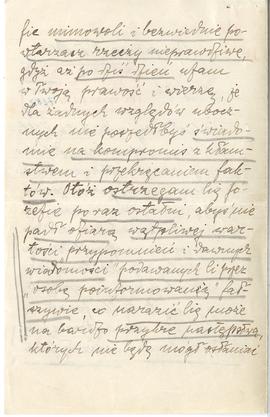 fie mimowoli i bezwiednie po-
wtarzasz rzeczy nieprawdziwe,
gdyż aż po dziś dzień ufam
w Twoją prawość i wierzę, że
dla żadnych względów ubocz-
nych nie poszedłbyś świado-
mie na kompromis z kłam-
stwem i przekręcaniem fak-
tów. Otóż ostrzegam Cię Jó-
zefie po raz ostatni, abyś nie
padł ofiarą wątpliwej war-
tości przypomnień i dawnych
wiadomości podawanych Ci przez
"osobę poinformowaną" fał-
szywie, co narazić Cię może
na bardzo przykre następstwa,
których nie będę mógł osłaniać